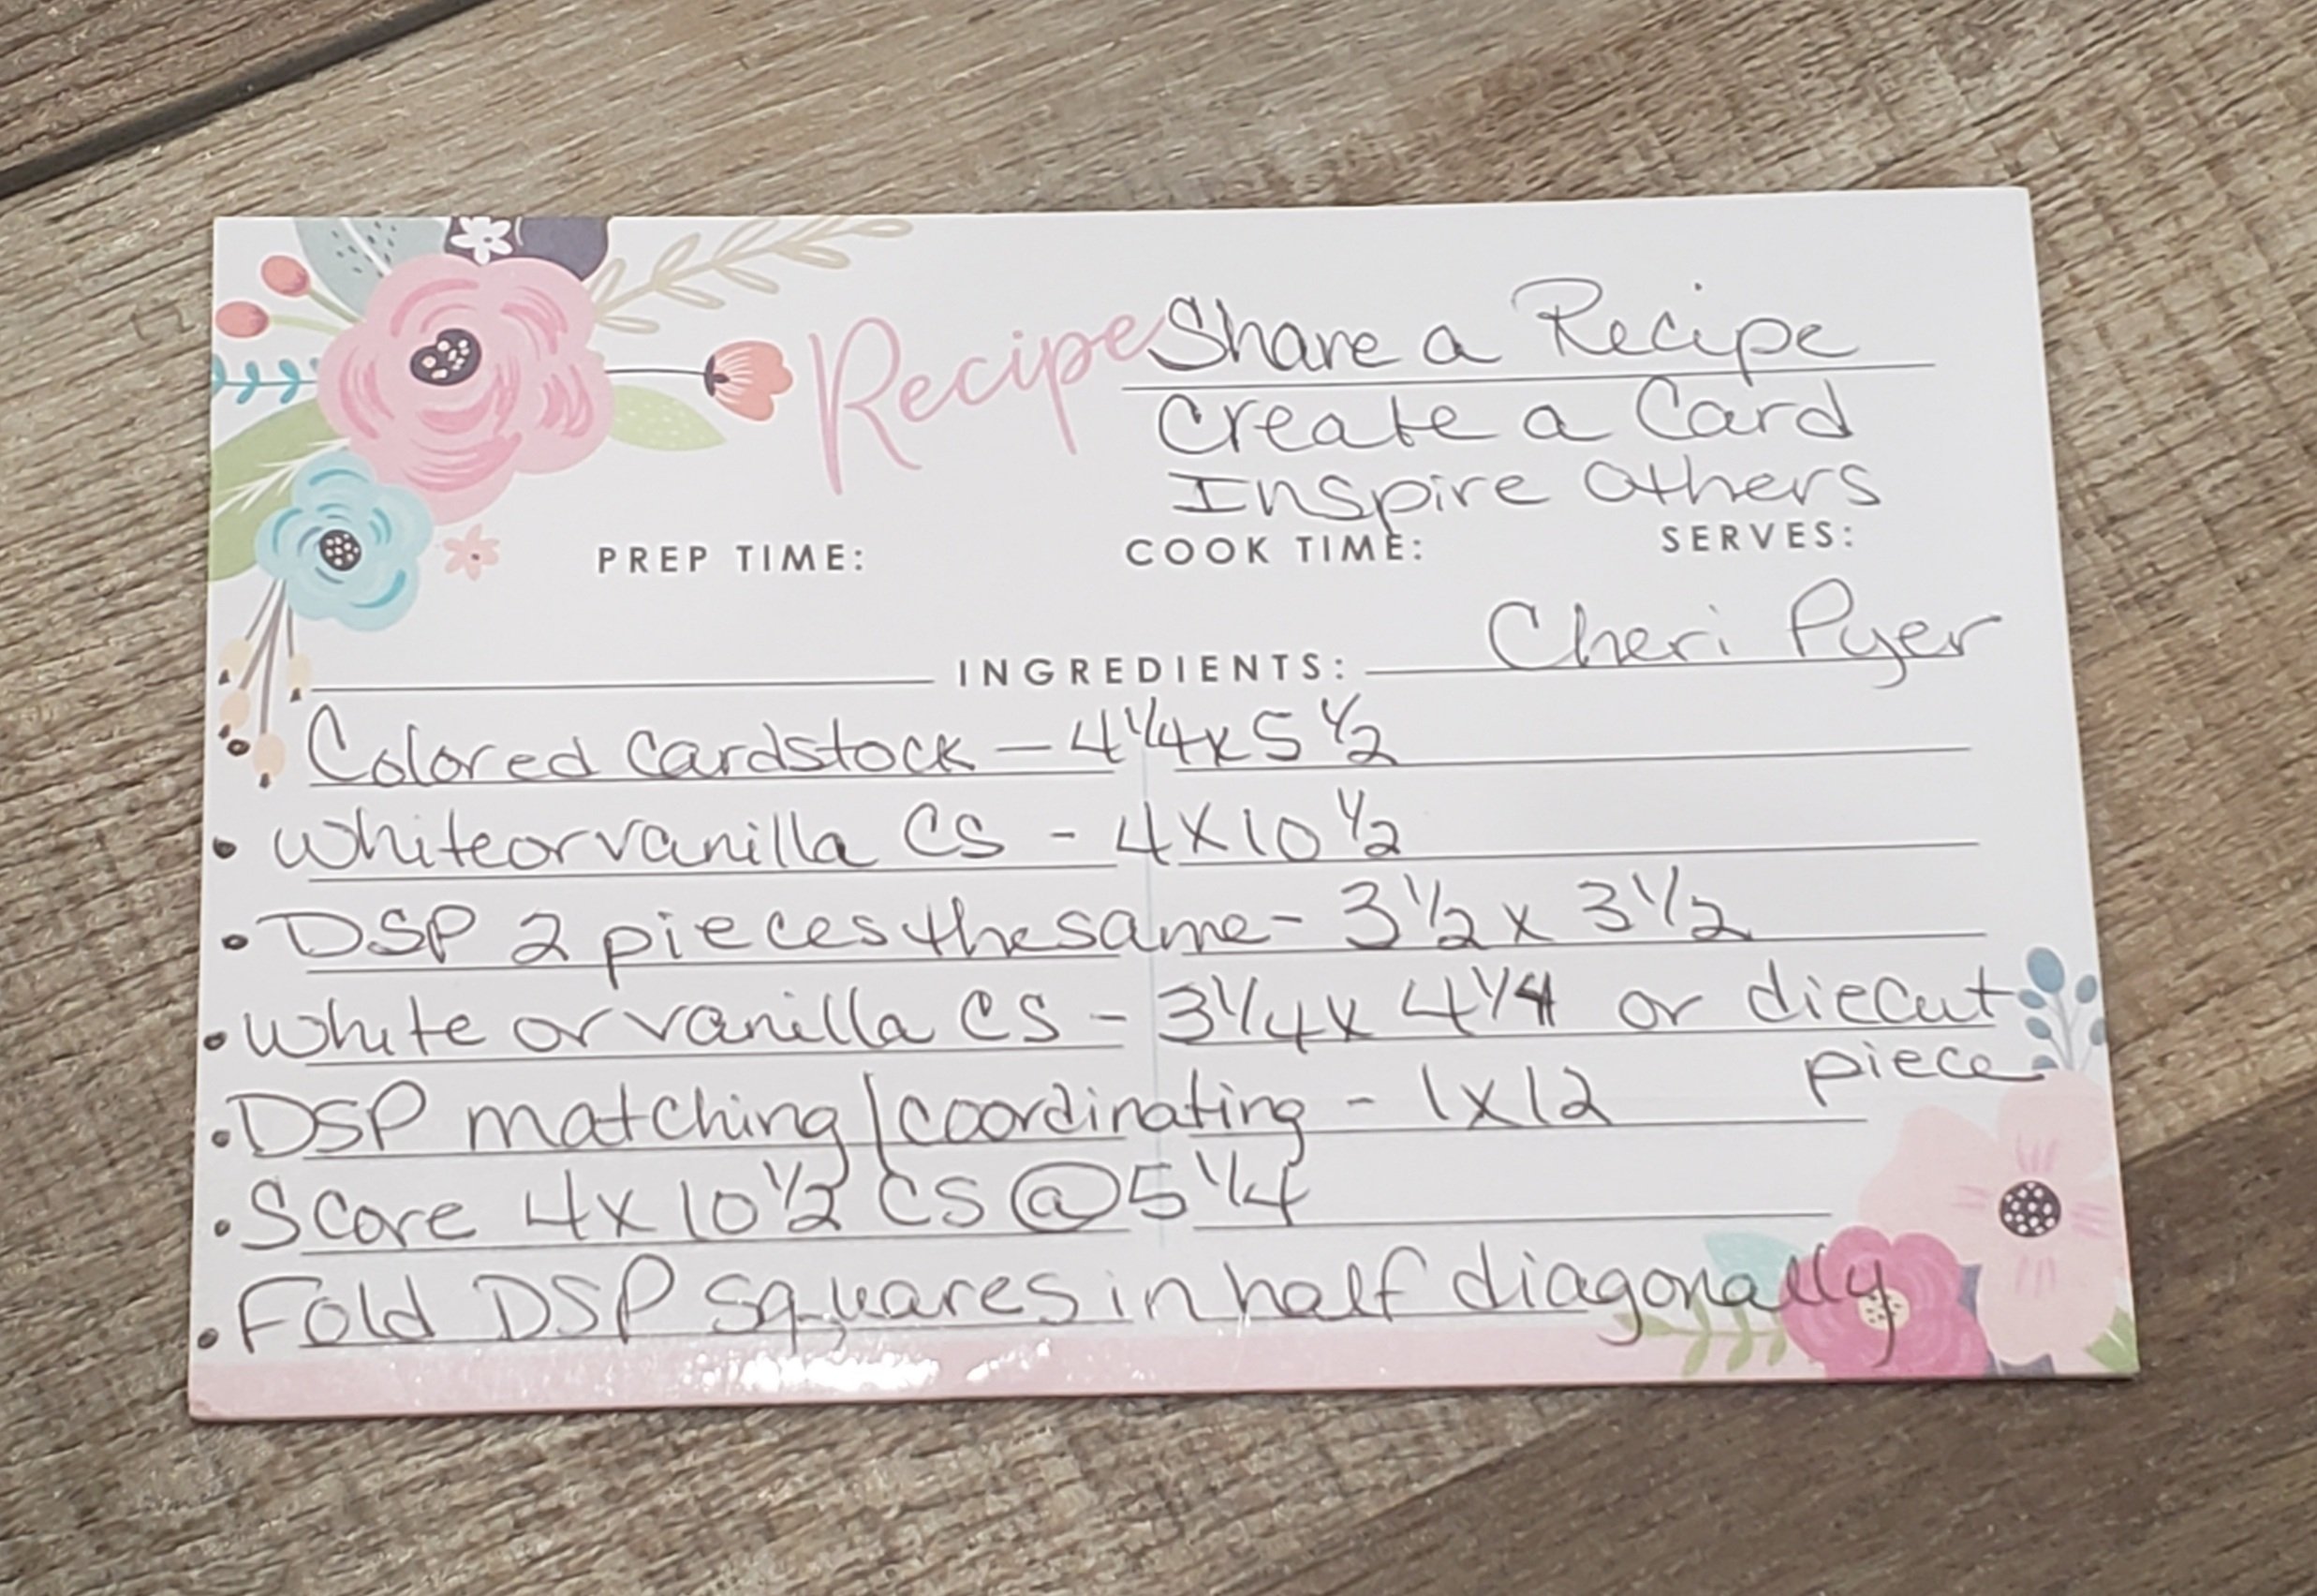 Recipe Share a Recipe
Create a Card
Inspire Others
PREP TIME: COOK TIME: SERVES:
Cheri Pyer
INGREDIENTS:
• Colored Cardstock - 4 1/4 x 5 1/2
• White or vanilla CS - 4 x 10 1/2
• DSP 2 pieces the same - 3 1/2 x 3 1/2
• White or vanilla CS - 3 1/4 x 4 1/4 or diecut
piece
• DSP matching/coordinating - 1 x 12
• Score 4 x 10 1/2 CS @ 5 1/4
• Fold DSP squares in half diagonally